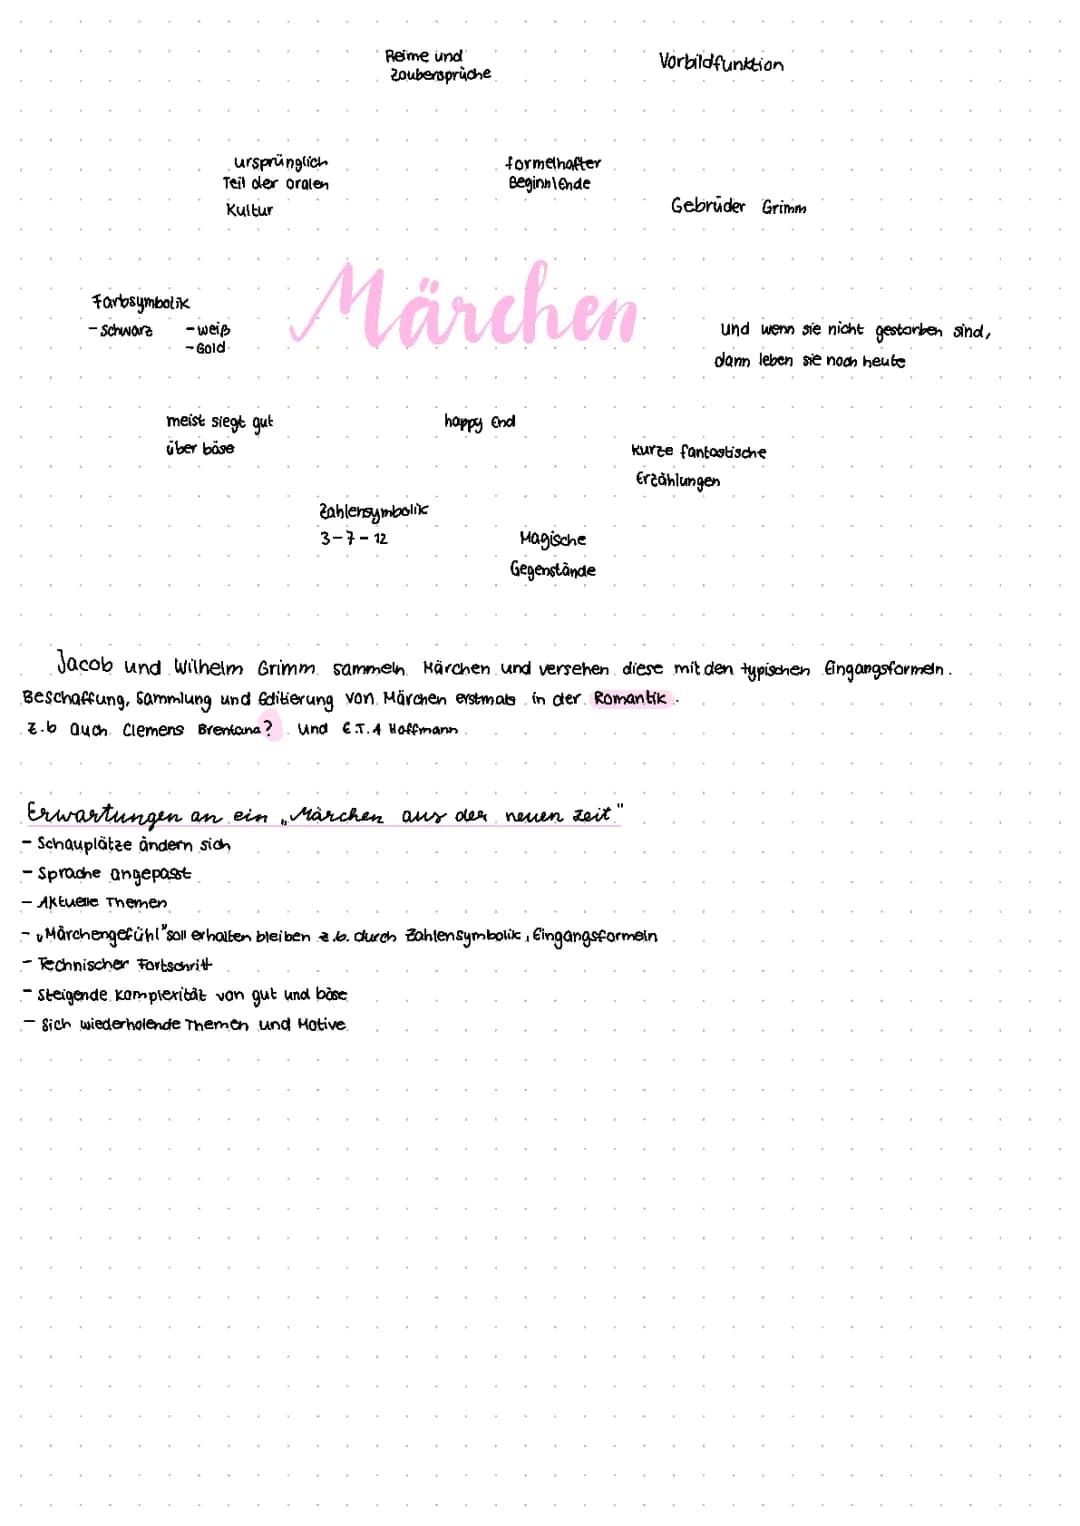 Reime und
Zaubersprüche
Vorbildfunktion
ursprünglich
Teil der oralen
Kultur
formelhafter
Beginn\Ende
Gebrüder Grimm
Märchen
Farbsymbolik
- Schwarz - weiß
- Gold
Und wenn sie nicht gestorben sind,
dann leben sie noch heute
meist siegt gut
über böse
happy End
kurze fantastische
Erzählungen
Zahlensymbolik
3-7-12
Magische
Gegenstände
Jacob und Wilhelm Grimm sammeln Märchen und versehen diese mit den typischen Eingangsformeln.
Beschaffung, Sammlung und Editierung von Märchen erstmals in der Romantik.
z.b auch Clemens Brentana? und E.T.A Hoffmann
Erwartungen an ein „Märchen aus der neuen Zeit"
- Schauplätze ändern sich
- Sprache angepasst
- Aktuelle Themen
- „Märchengefühl" soll erhalten bleiben z.b. durch Zahlensymbolik, Eingangsformeln
- Technischer Fortschritt
- Steigende Komplexität von gut und böse
- Sich wiederholende Themen und Motive